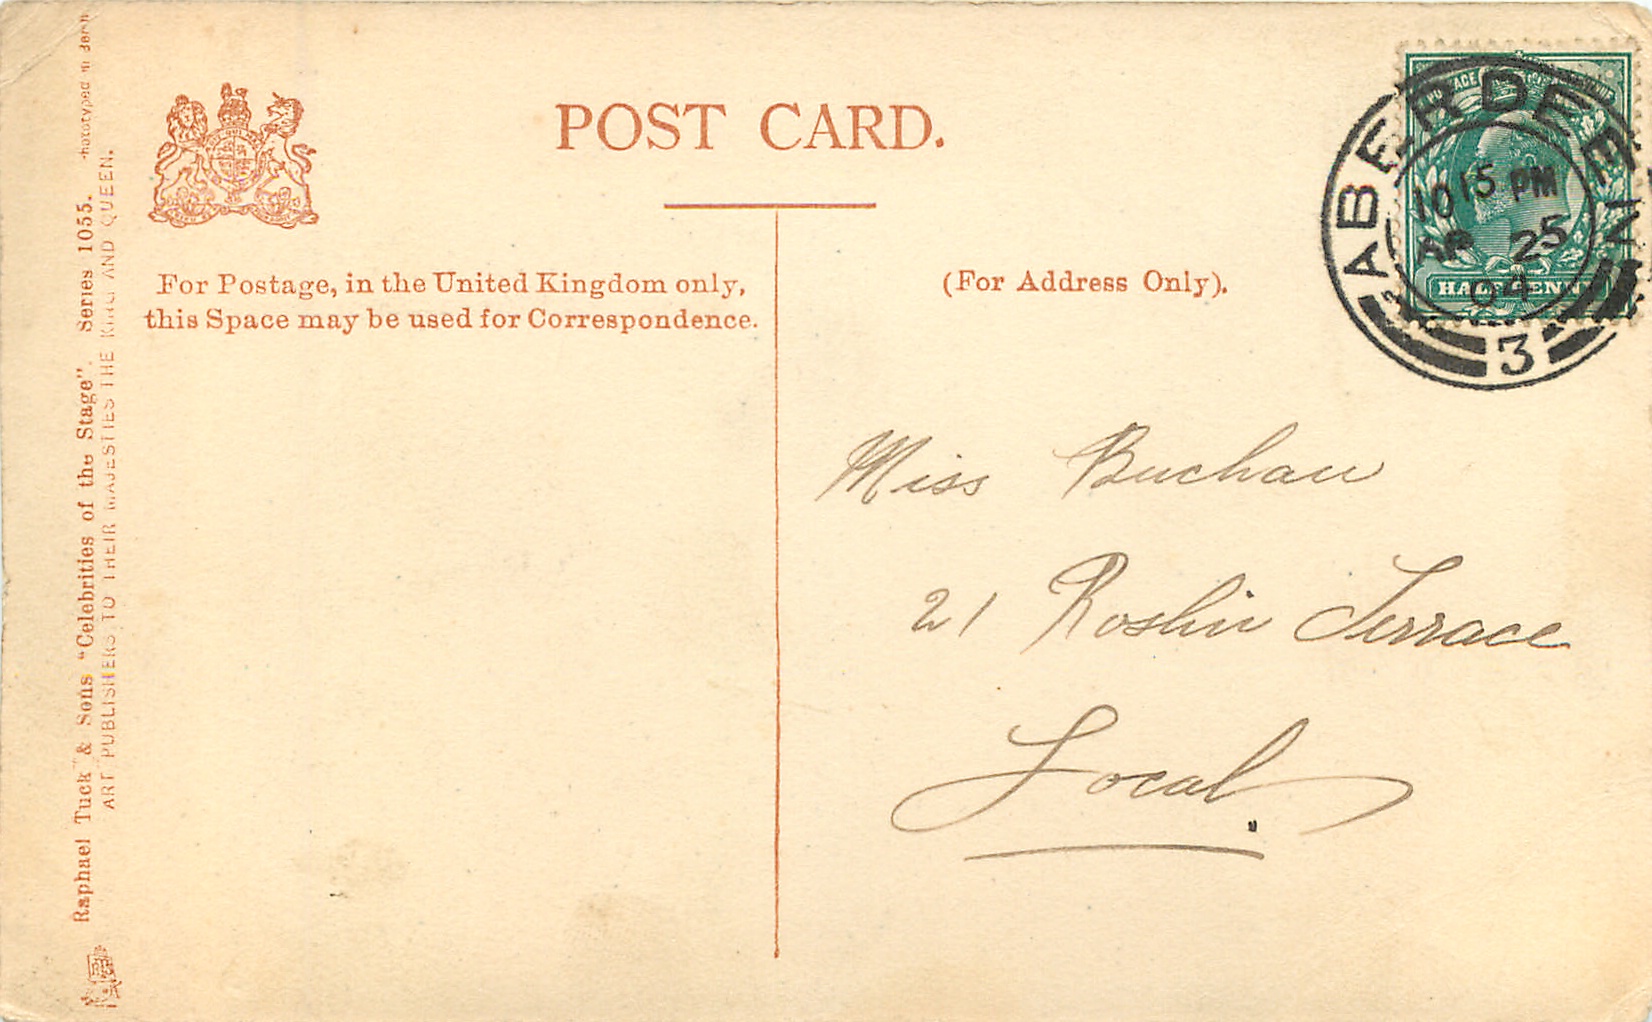 POST CARD.
For Postage, in the United Kingdom only,
this Space may be used for Correspondence.
(For Address Only).
ABERDEEN
10 15 PM
AP 25
04
3
HALFPENNY
Miss Buchan
21 Roslin Terrace
Local.
Raphael Tuck & Sons "Celebrities of the Stage". Series 1055.
ART PUBLISHERS TO THEIR MAJESTIES THE KING AND QUEEN.